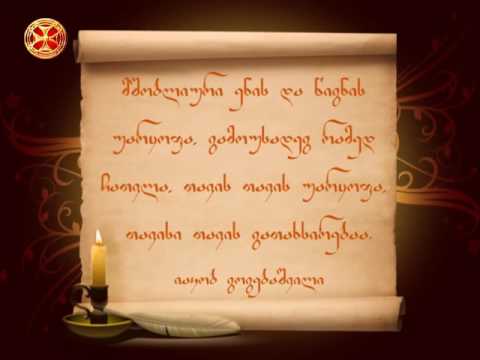 მშობლიური ენის და წიგნის
უარყოფა, გამოუსადეგ რამედ
ჩათვლა, თავის თავის უარყოფა,
თავისი თავის გათახსირებაა.
იაკობ გოგებაშვილი